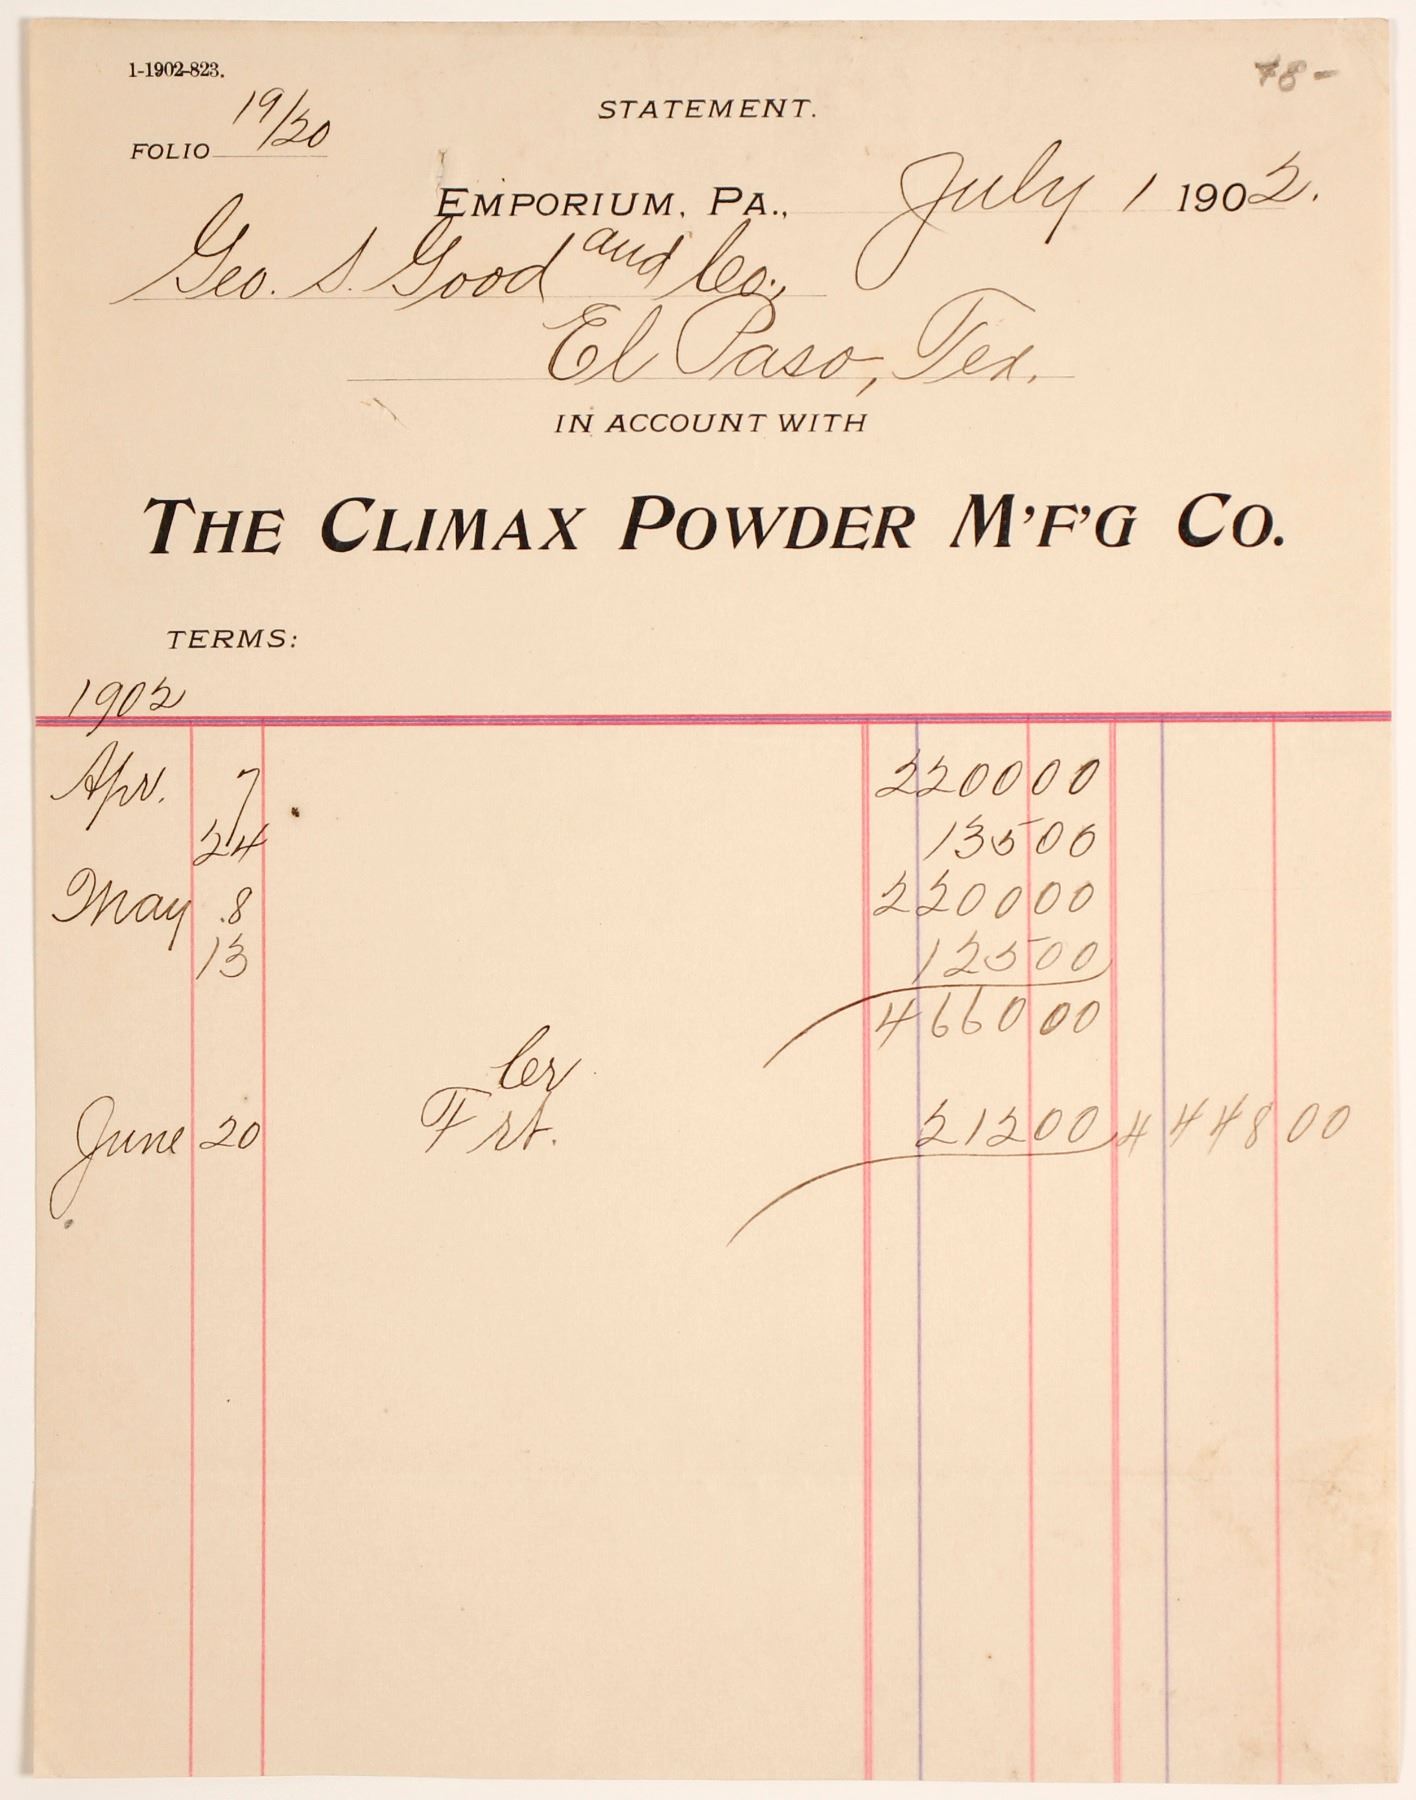 1-1902-823.
78-
STATEMENT.
FOLIO 19/20
EMPORIUM, PA., July 1 1902.
Geo. S. Good and Co.,
El Paso, Tex.
IN ACCOUNT WITH
THE CLIMAX POWDER M'F'G CO.
TERMS:
1902
Apr. 7 2200 00
24 135 00
May 8 2200 00
13 125 00
4660 00
Cr
June 20 Frt. 212 00 4448 00